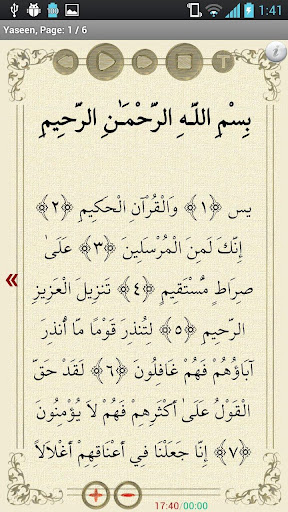 1:41
Yaseen, Page: 1 / 6
بِسْمِ اللَّهِ الرَّحْمَٰنِ الرَّحِيمِ
يس ﴿١﴾ وَالْقُرْآنِ الْحَكِيمِ ﴿٢﴾
إِنَّكَ لَمِنَ الْمُرْسَلِينَ ﴿٣﴾ عَلَىٰ
صِرَاطٍ مُّسْتَقِيمٍ ﴿٤﴾ تَنزِيلَ الْعَزِيزِ
الرَّحِيمِ ﴿٥﴾ لِتُنذِرَ قَوْمًا مَّا أُنذِرَ
آبَاؤُهُمْ فَهُمْ غَافِلُونَ ﴿٦﴾ لَقَدْ حَقَّ
الْقَوْلُ عَلَىٰ أَكْثَرِهِمْ فَهُمْ لَا يُؤْمِنُونَ
﴿٧﴾ إِنَّا جَعَلْنَا فِي أَعْنَاقِهِمْ أَغْلَالًا
17:40/00:00